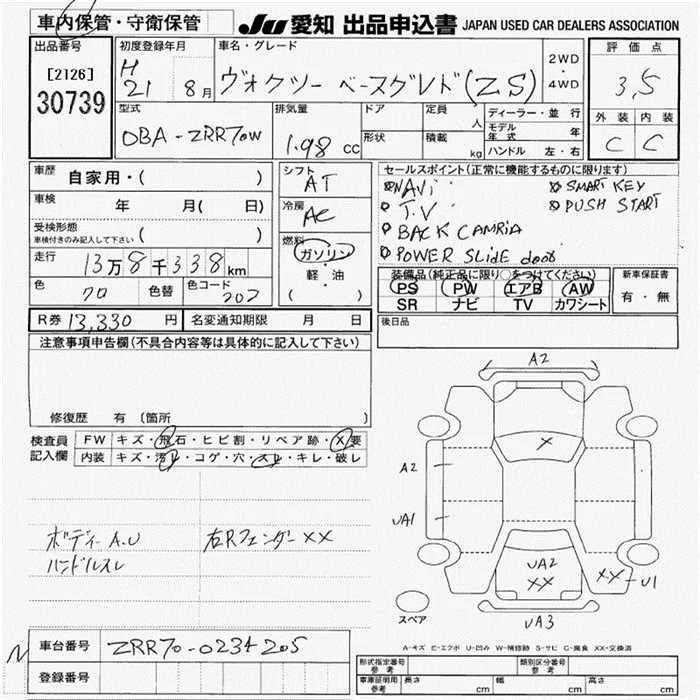 車内保管・守衛保管
JU 愛知 出品申込書 JAPAN USED CAR DEALERS ASSOCIATION
出品番号
[2126]
30739
初度登録年月
H
21 8月
車名・グレード
ヴォクシー ベースグレド(ZS)
2WD
・
4WD
評価点
3.5
外装 内装
C C
型式
DBA-ZRR70W
排気量
1.98 cc
ドア
形状
定員
人
積載
kg
ディーラー・並行
モデル年式 年
ハンドル 左・右
車歴 自家用・( )
車検 年 月( 日)
受検形態
車検付きのみ記入して下さい ( )
走行 13万8千338km
色 クロ 色替 色コード 202
シフト
AT
冷房
AC
燃料
ガソリン
・
軽・油
( )
セールスポイント(正常に機能するものに限ります)
NAVI
T.V
BACK CAMRIA
POWER SLIDE door
SMART KEY
PUSH START
装備品(純正品に限り○をつけてください)
PS PW エアB AW
SR ナビ TV カワシート
新車保証書
有・無
R券 13,330 円 名変通知期限 月 日
後日品
注意事項申告欄(不具合内容等は具体的に記入して下さい)
修復歴 有 (箇所 )
検査員記入欄
FW キズ・飛石・ヒビ割・リペア跡・X要
内装 キズ・汚レ・コゲ・穴・スレ・キレ・破レ
ボディーA.U 右Rフェンダー XX
ハンドルスレ
A2
X
A2
UA1
UA2
XX
XX
U1
UA3
スペア
A-キズ E-エクボ U-凹み W-補修跡 S-サビ C-腐食 XX-交換済
車台番号 ZRR70-0234205
登録番号
形式指定番号
参考
類別区分番号
参考
車庫証明用
参考
長さ cm 幅 cm 高さ cm